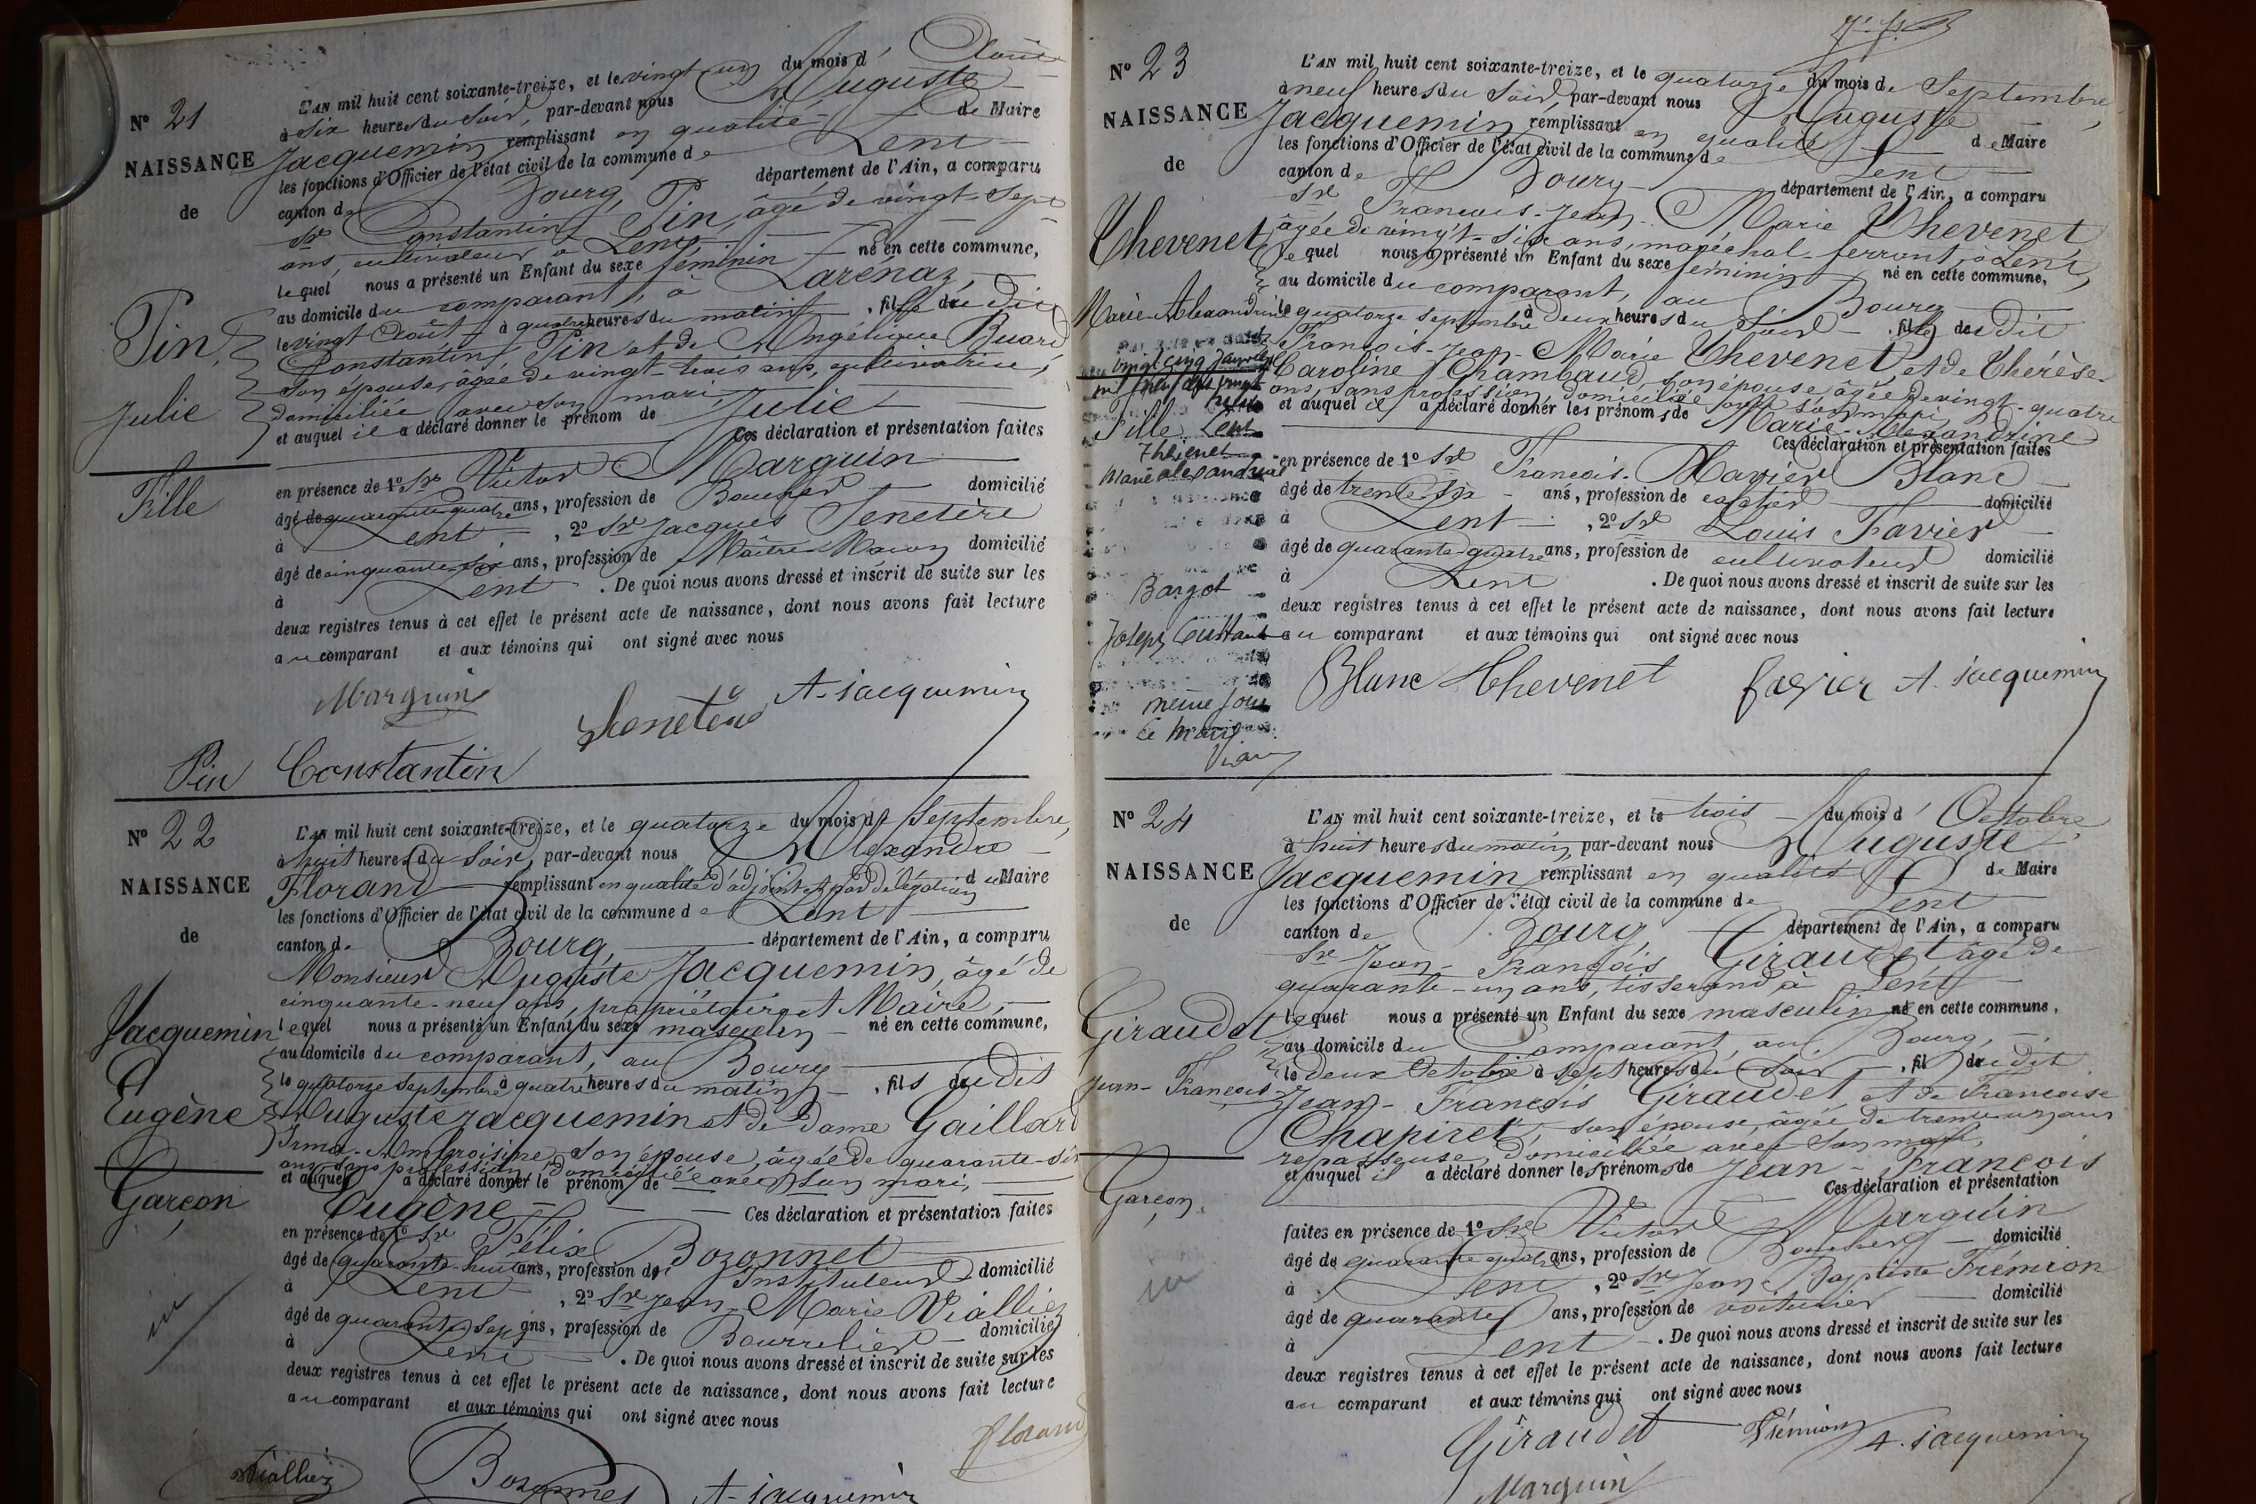 Nº 21
NAISSANCE
de
Pin,
Julie
Fille
L'AN mil huit cent soixante-treize, et le vingt-un du mois d' Août
à six heures du soir, par-devant nous Auguste
Jacquemin remplissant en qualité de Maire
les fonctions d'Officier de l'état civil de la commune de Lent
canton de Bourg, département de l'Ain, a comparu
Sr Constantin Pin, âgé de vingt-sept
ans, cultivateur à Lent,
lequel nous a présenté un Enfant du sexe féminin né en cette commune,
au domicile du comparant, à Larénaz,
le vingt Août à quatre heures du matin, fille du dit
Constantin Pin et de Angélique Buard
son épouse, âgée de vingt-trois ans, cultivatrice,
domiciliée avec son mari,
et auquel il a déclaré donner le prénom de Julie
Ces déclaration et présentation faites
en présence de 1º Sr Victor Marguin
âgé de quarante-quatre ans, profession de Boucher domicilié
à Lent, 2º Sr Jacques Senetère
âgé de cinquante-six ans, profession de Maître-Maçon domicilié
à Lent. De quoi nous avons dressé et inscrit de suite sur les
deux registres tenus à cet effet le présent acte de naissance, dont nous avons fait lecture
au comparant et aux témoins qui ont signé avec nous
Marguin Senetère A. Jacquemin
Pin Constantin
Nº 22
NAISSANCE
de
Jacquemin
Eugène
Garçon
L'AN mil huit cent soixante-treize, et le quatorze du mois de Septembre,
à huit heures du soir, par-devant nous Alexandre
Florand remplissant en qualité d'adjoint et par délégation du Maire
les fonctions d'Officier de l'état civil de la commune de Lent
canton de Bourg, département de l'Ain, a comparu
Monsieur Auguste Jacquemin, âgé de
cinquante-neuf ans, propriétaire et Maire,
lequel nous a présenté un Enfant du sexe masculin né en cette commune,
au domicile du comparant, au Bourg
le quatorze septembre à quatre heures du matin, fils du dit
Auguste Jacquemin et de Dame Gaillard
Irma-Ambroisine son épouse, âgée de quarante-six
ans, sans profession, domiciliée avec son mari,
et auquel a déclaré donner le prénom de
Eugène Ces déclaration et présentation faites
en présence de 1º Sr Félix Bozonnet
âgé de quarante-huit ans, profession de Instituteur domicilié
à Lent, 2º Sr Jean-Marie Viallier
âgé de quarante-sept ans, profession de Bourrelier domicilié
à Lent. De quoi nous avons dressé et inscrit de suite sur les
deux registres tenus à cet effet le présent acte de naissance, dont nous avons fait lecture
au comparant et aux témoins qui ont signé avec nous
Florand
Viallier Bozonnet A. Jacquemin
Nº 23
NAISSANCE
de
Thevenet
Marie-Alexandrine
vingt cinq Janvier
mil neuf cent vingt
Fille
Lent
Thevenet
Marie Alexandrine
Bargot
Joseph Constant
même jour
Le Maire
L'AN mil huit cent soixante-treize, et le quatorze du mois de Septembre,
à neuf heures du soir, par-devant nous Auguste
Jacquemin remplissant en qualité de Maire
les fonctions d'Officier de l'état civil de la commune de Lent
canton de Bourg département de l'Ain, a comparu
Sr François-Jean-Marie Thevenet
âgé de vingt-six ans, maréchal-ferrant, à Lent,
lequel nous a présenté un Enfant du sexe féminin né en cette commune,
au domicile du comparant, au Bourg
le quatorze septembre à deux heures du soir, fille du dit
François-Jean-Marie Thevenet, et de Thérèse-
Caroline Chambaud, son épouse âgée de vingt-quatre
ans, sans profession domiciliée avec son mari
et auquel il a déclaré donner les prénoms de Marie-Alexandrine
Ces déclaration et présentation faites
en présence de 1º Sr François-Xavier Blanc
âgé de trente-six ans, profession de domicilié
à Lent, 2º Sr Louis Favier
âgé de quarante-quatre ans, profession de cultivateur domicilié
à Lent. De quoi nous avons dressé et inscrit de suite sur les
deux registres tenus à cet effet le présent acte de naissance, dont nous avons fait lecture
au comparant et aux témoins qui ont signé avec nous
Blanc Thevenet favier A. Jacquemin
Nº 24
NAISSANCE
de
Giraudet
Jean-François
Garçon
L'AN mil huit cent soixante-treize, et le trois du mois d' Octobre,
à huit heures du matin, par-devant nous Auguste
Jacquemin remplissant en qualité de Maire
les fonctions d'Officier de l'état civil de la commune de Lent
canton de Bourg département de l'Ain, a comparu
Sr Jean-François Giraudet âgé de
quarante-un ans, tisserand, à Lent
lequel nous a présenté un Enfant du sexe masculin né en cette commune,
au domicile du comparant, au Bourg,
le deux Octobre à sept heures du soir, fil du dit
Jean-François Giraudet et de Françoise
Chapiret, son épouse, âgée de trente-un ans
repasseuse, domiciliée avec son mari,
et auquel il a déclaré donner les prénoms de Jean-François
Ces déclaration et présentation
faites en présence de 1º Sr Victor Marguin
âgé de quarante-quatre ans, profession de Boucher domicilié
à Lent, 2º Sr Jean-Baptiste Frémion
âgé de quarante ans, profession de voiturier domicilié
à Lent. De quoi nous avons dressé et inscrit de suite sur les
deux registres tenus à cet effet le présent acte de naissance, dont nous avons fait lecture
au comparant et aux témoins qui ont signé avec nous
Giraudet Frémion A. Jacquemin
Marguin